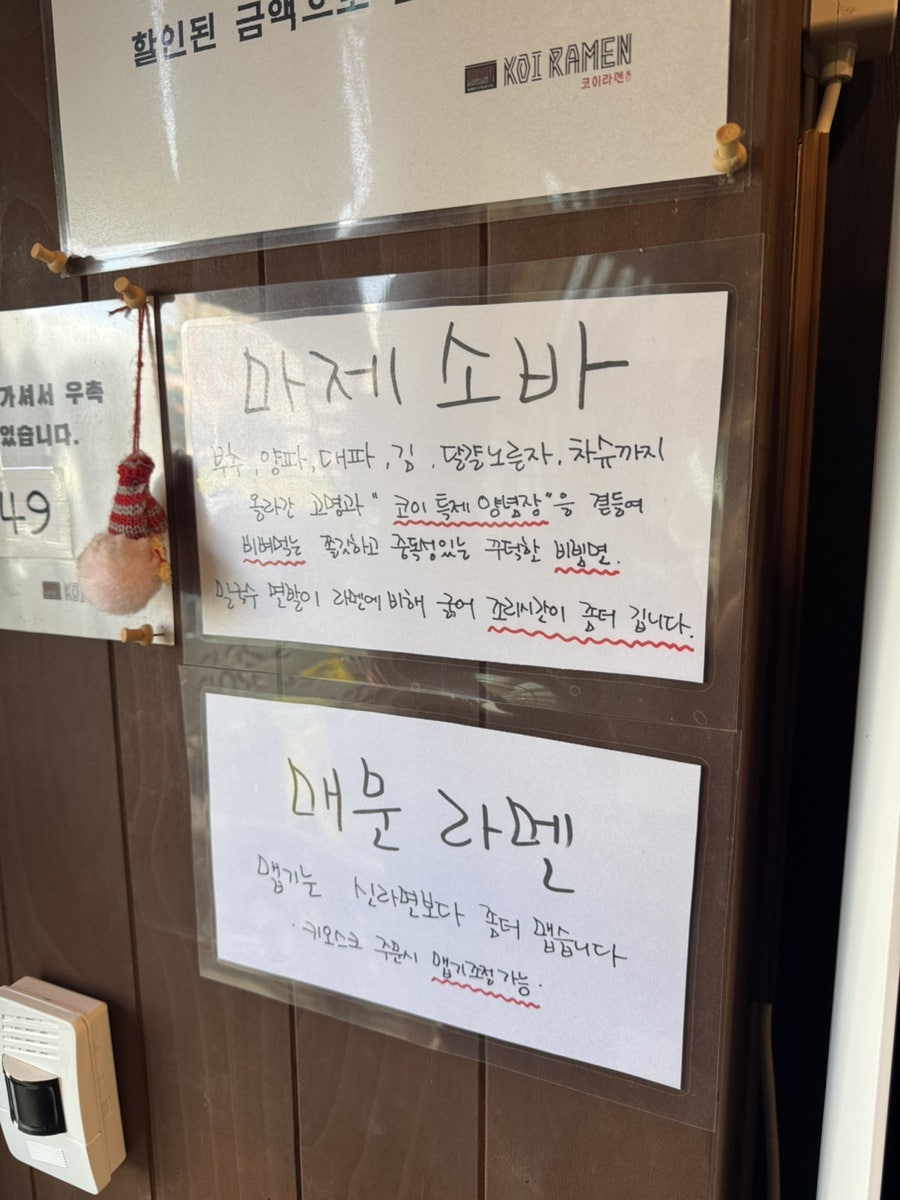 할인된 금액으로
KOI RAMEN
코이라멘
가셔서 우측
있습니다.
49
마제소바
부추, 양파, 대파, 김, 달걀노른자, 차슈까지
올라간 고명과 "코이 특제 양념장"을 곁들여
비벼먹는 쫄깃하고 중독성있는 꾸덕한 비빔면.
밀국수 면발이 라멘에 비해 굵어 조리시간이 좀더 깁니다.
매운 라멘
맵기는 신라면보다 좀더 맵습니다
· 키오스크 주문시 맵기조절가능.